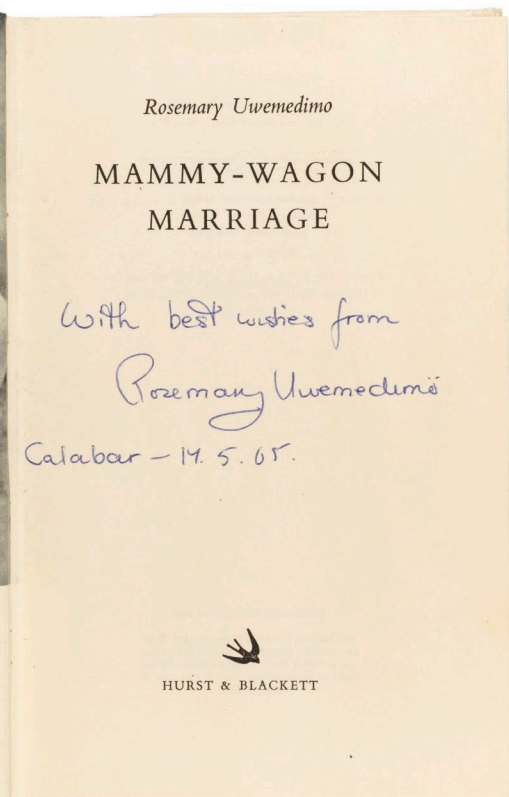 Rosemary Uwemedimo
MAMMY-WAGON
MARRIAGE
With best wishes from
Rosemary Uwemedimo
Calabar – 14. 5. 65.
HURST & BLACKETT